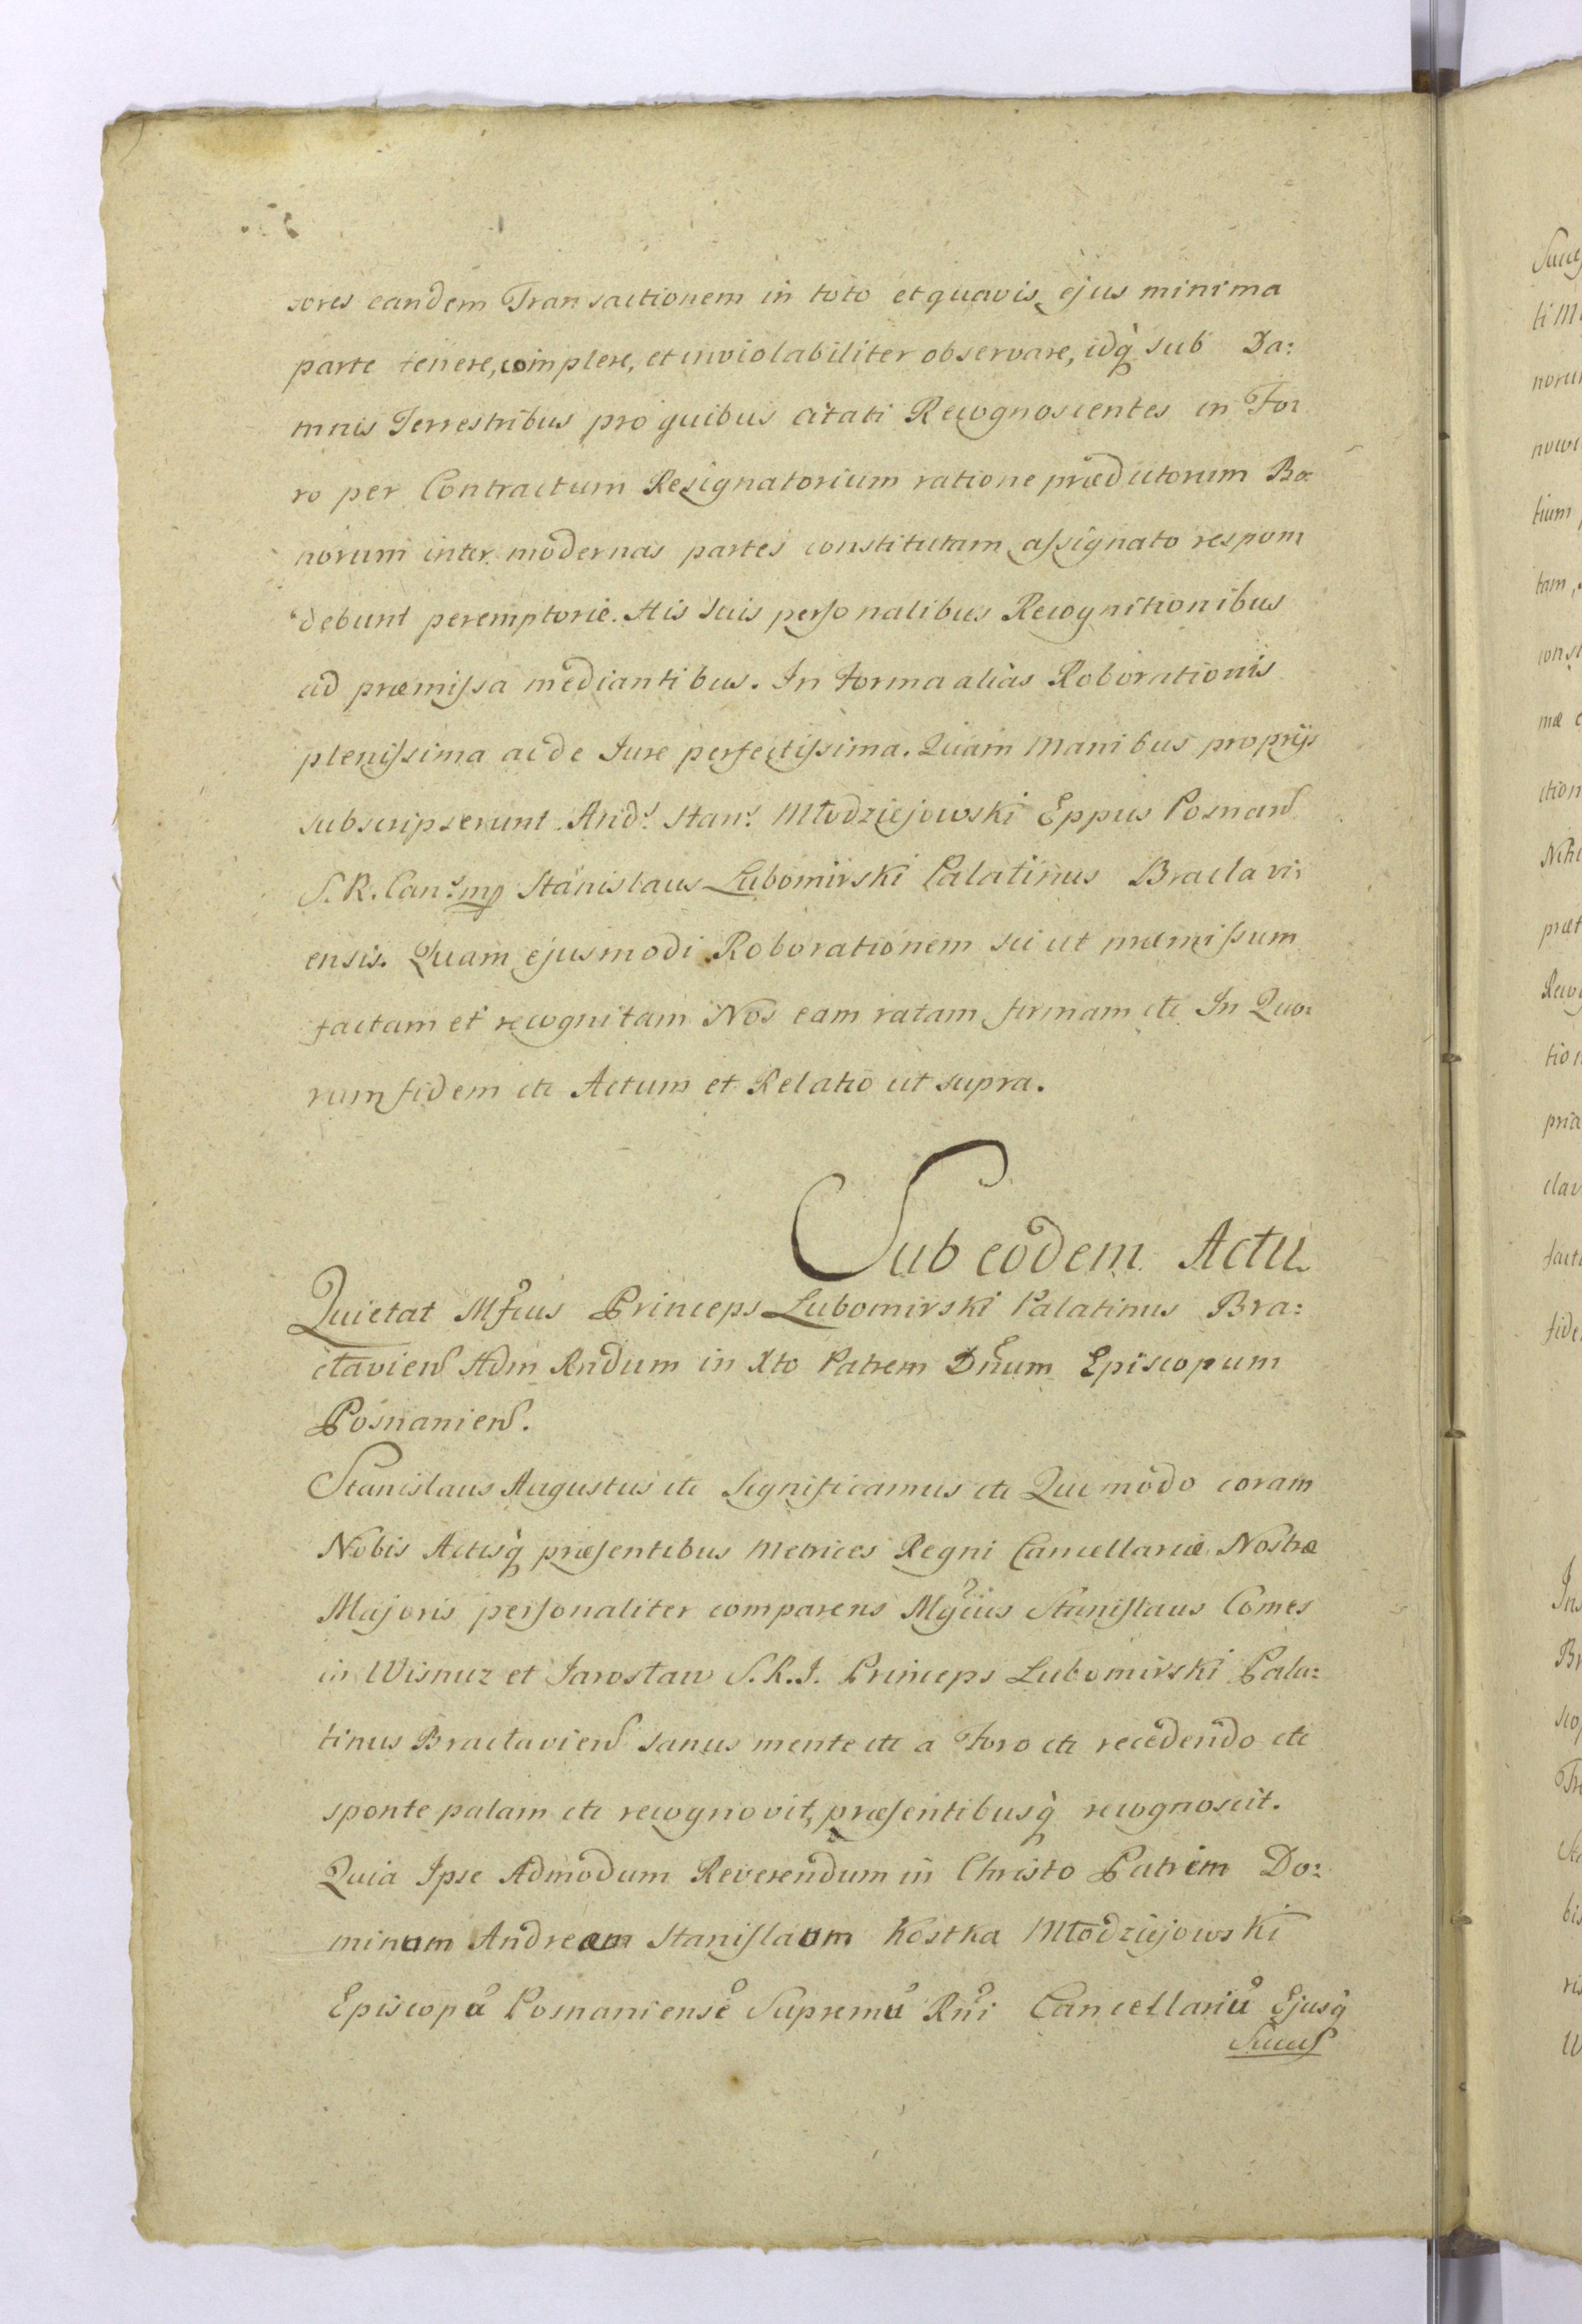 sores eandem Transactionem in toto et quavis ejus minima
parte tenere, complere, et inviolabiliter observare, idq̀ sub Da:
mnis Terrestribus pro quibus citati Recognoscentes in Fo:
ro per Contractum Resignatorium ratione prædictorum Bo:
norum inter modernas partes constitutam assignato respon:
debunt peremptorie. His suis personalibus Recognitionibus
ad præmissa mediantibus. In Forma alias Roborationis
plenissima ac de Jure perfectissima. Quam Manibus proprijs
subscripserunt. And.s Stan.s Młodziejowski Eppus Posnan
S. R. Can.s mp Stanislaus Lubomirski Palatinus Braclavi:
ensis. Quam ejusmodi Roborationem sic ut præmissum
factam et recognitam Nos eam ratam firmam etc In Quo:
rum fidem etc Actum et Relatio ut supra.
Sub eodem Actu
Quietat Mfcus Princeps Lubomirski Palatinus Bra:
clavien Adm Rndum in Xto Patrem Dnum Episcopum
Posnanien.
Stanislaus Augustus etc Significamus etc Quia modo coram
Nobis Actisq̀ præsentibus Metrices Regni Cancellariæ Nostræ
Majoris personaliter comparens Mgcus Stanislaus Comes
in Wisnicz et Jarosław S. R. I. Princeps Lubomirski Pala:
tinus Braclavien sanus mente etc a Foro etc recedendo etc
sponte palam etc recognovit, præsentibusq̀ recognoscit.
Quia Ipse Admodum Reverendum in Christo Patrem Do:
minum Andream Stanislaum Kostka Młodziejowski
Episcopū Posnaniensē Supremū Rni Cancellariū Ejusq̀
Succes